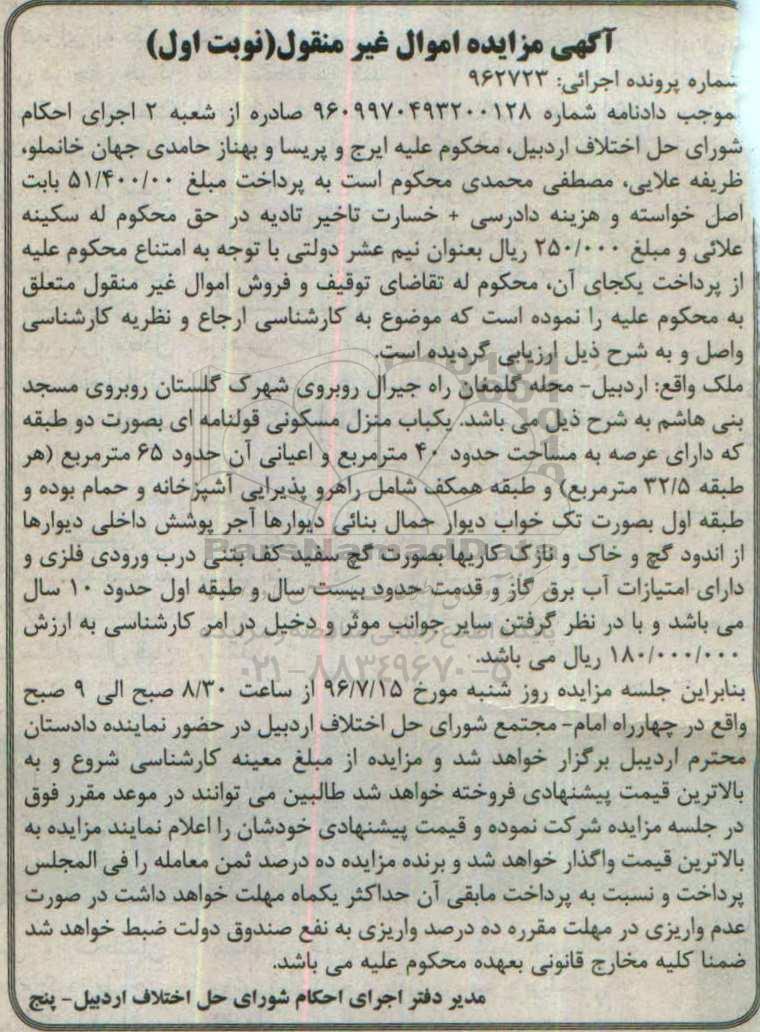 آگهی مزایده اموال غیر منقول(نوبت اول)
شماره پرونده اجرائی: ۹۶۲۷۲۳
بموجب دادنامه شماره ۹۶۰۹۹۷۰۴۹۳۲۰۰۱۲۸ صادره از شعبه ۲ اجرای احکام
شورای حل اختلاف اردبیل، محکوم علیه ایرج و پریسا و بهناز حامدی جهان خانملو،
ظریفه علایی، مصطفی محمدی محکوم است به پرداخت مبلغ ۵۱/۴۰۰/۰۰ بابت
اصل خواسته و هزینه دادرسی + خسارت تاخیر تادیه در حق محکوم له سکینه
علائی و مبلغ ۲۵۰/۰۰۰ ریال بعنوان نیم عشر دولتی با توجه به امتناع محکوم علیه
از پرداخت یکجای آن، محکوم له تقاضای توقیف و فروش اموال غیر منقول متعلق
به محکوم علیه را نموده است که موضوع به کارشناسی ارجاع و نظریه کارشناسی
واصل و به شرح ذیل ارزیابی گردیده است.
ملک واقع: اردبیل- محله گلمغان راه جیرال روبروی شهرک گلستان روبروی مسجد
بنی هاشم به شرح ذیل می باشد. یکباب منزل مسکونی قولنامه ای بصورت دو طبقه
که دارای عرصه به مساحت حدود ۴۰ مترمربع و اعیانی آن حدود ۶۵ مترمربع (هر
طبقه ۳۲/۵ مترمربع) و طبقه همکف شامل راهرو پذیرایی آشپزخانه و حمام بوده و
طبقه اول بصورت تک خواب دیوار حمال بنائی دیوارها آجر پوشش داخلی دیوارها
از اندود گچ و خاک و نازک کاریها بصورت گچ سفید کف بتنی درب ورودی فلزی و
دارای امتیازات آب برق گاز و قدمت حدود بیست سال و طبقه اول حدود ۱۰ سال
می باشد و با در نظر گرفتن سایر جوانب موثر و دخیل در امر کارشناسی به ارزش
۱۸۰/۰۰۰/۰۰۰ ریال می باشد.
بنابراین جلسه مزایده روز شنبه مورخ ۹۶/۷/۱۵ از ساعت ۸/۳۰ صبح الی ۹ صبح
واقع در چهارراه امام- مجتمع شورای حل اختلاف اردبیل در حضور نماینده دادستان
محترم اردبیل برگزار خواهد شد و مزایده از مبلغ معینه کارشناسی شروع و به
بالاترین قیمت پیشنهادی فروخته خواهد شد طالبین می توانند در موعد مقرر فوق
در جلسه مزایده شرکت نموده و قیمت پیشنهادی خودشان را اعلام نمایند مزایده به
بالاترین قیمت واگذار خواهد شد و برنده مزایده ده درصد ثمن معامله را فی المجلس
پرداخت و نسبت به پرداخت مابقی آن حداکثر یکماه مهلت خواهد داشت در صورت
عدم واریزی در مهلت مقرره ده درصد واریزی به نفع صندوق دولت ضبط خواهد شد
ضمنا کلیه مخارج قانونی بعهده محکوم علیه می باشد.
مدیر دفتر اجرای احکام شورای حل اختلاف اردبیل- پنج
ParsNamadData
۰۲۱-۸۸۳۴۹۶۷۰-۵